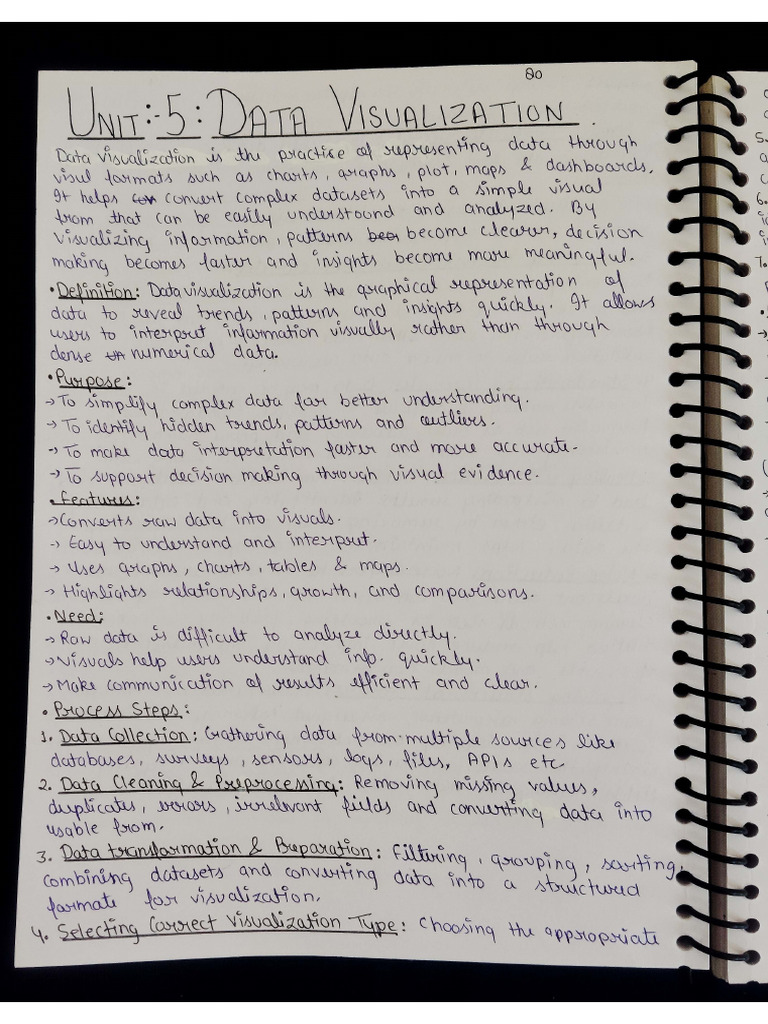 20
UNIT:-5: DATA VISUALIZATION.
Data visualization is the practise of representing data through
visul formats such as charts, graphs, plot, maps & dashboards.
It helps convert complex datasets into a simple visual
from that can be easily understoond and analyzed. By
visualizing information, patterns become clearer, decision
making becomes faster and insights become more meaningful.
• Definition: Data visualization is the graphical representation of
data to reveal trends, patterns and insights quickly. It allows
users to interprut information visually rather than through
dense numerical data.
• Purpose:
→ To simplify complex data for better understanding.
→ To identify hidden trends, patterns and outliers.
→ To make data interpretation faster and more accurate.
→ To support decision making through visual evidence.
• Features:
→ Converts raw data into visuals.
→ Easy to understand and interprut.
→ Uses graphs, charts, tables & maps.
→ Highlights relationships, growth, and comparisons.
• Need:
→ Raw data is difficult to analyze directly.
→ Visuals help users understand info. quickly.
→ Make communication of results efficient and clear.
• Process Steps:
1. Data Collection: Gathering data from multiple sources like
databases, surveys, sensors, logs, files, APIs etc
2. Data Cleaning & Preprocessing: Removing missing values,
duplicates, errors, irrelevant fields and converting data into
usable from.
3. Data transformation & Preparation: Filtering, grouping, sorting,
combining datasets and converting data into a structured
formate for visualization.
4. Selecting Correct Visualization Type: Choosing the appropriate
5.
6.
7.